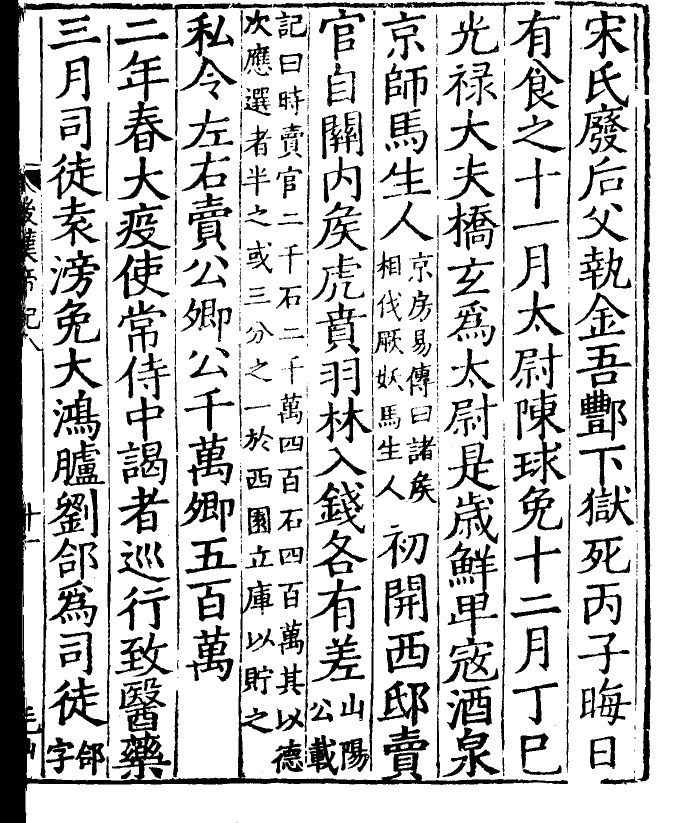 宋氏廢后父執金吾酆下獄死丙子晦日
有食之十一月太尉陳球免十二月丁巳
光禄大夫橋玄爲太尉是歲鮮卑寇酒泉
京師馬生人京房易傳曰諸矦相伐厥妖馬生人初開西邸賣
官自關内矦虎賁羽林入錢各有差山陽公載
記曰時賣官二千石二千萬四百石四百萬其以德次應選者半之或三分之一於西園立庫以貯之
私令左右賣公卿公千萬卿五百萬
二年春大疫使常侍中謁者巡行致醫藥
三月司徒袁滂免大鴻臚劉郃爲司徒郃字
後漢帝紀八
十一